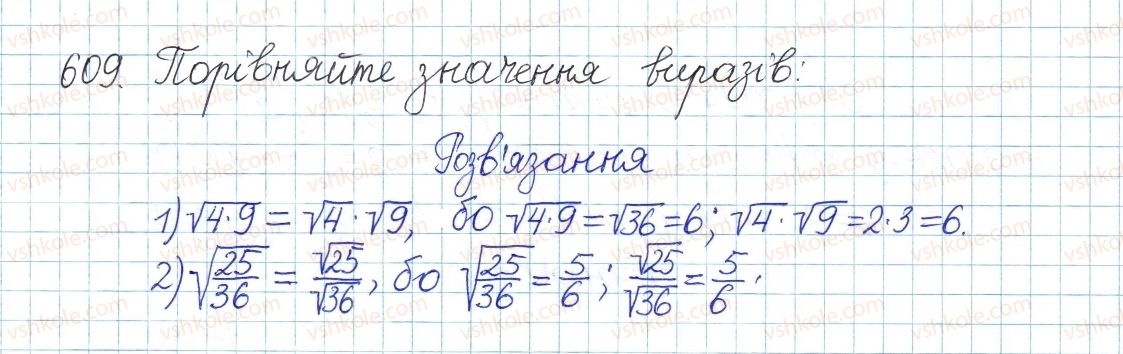 609. Порівняйте значення виразів:
Розв'язання
1) √(4·9) = √4 · √9, бо √(4·9) = √36 = 6; √4 · √9 = 2·3 = 6.
2) √(25/36) = √25/√36, бо √(25/36) = 5/6; √25/√36 = 5/6.